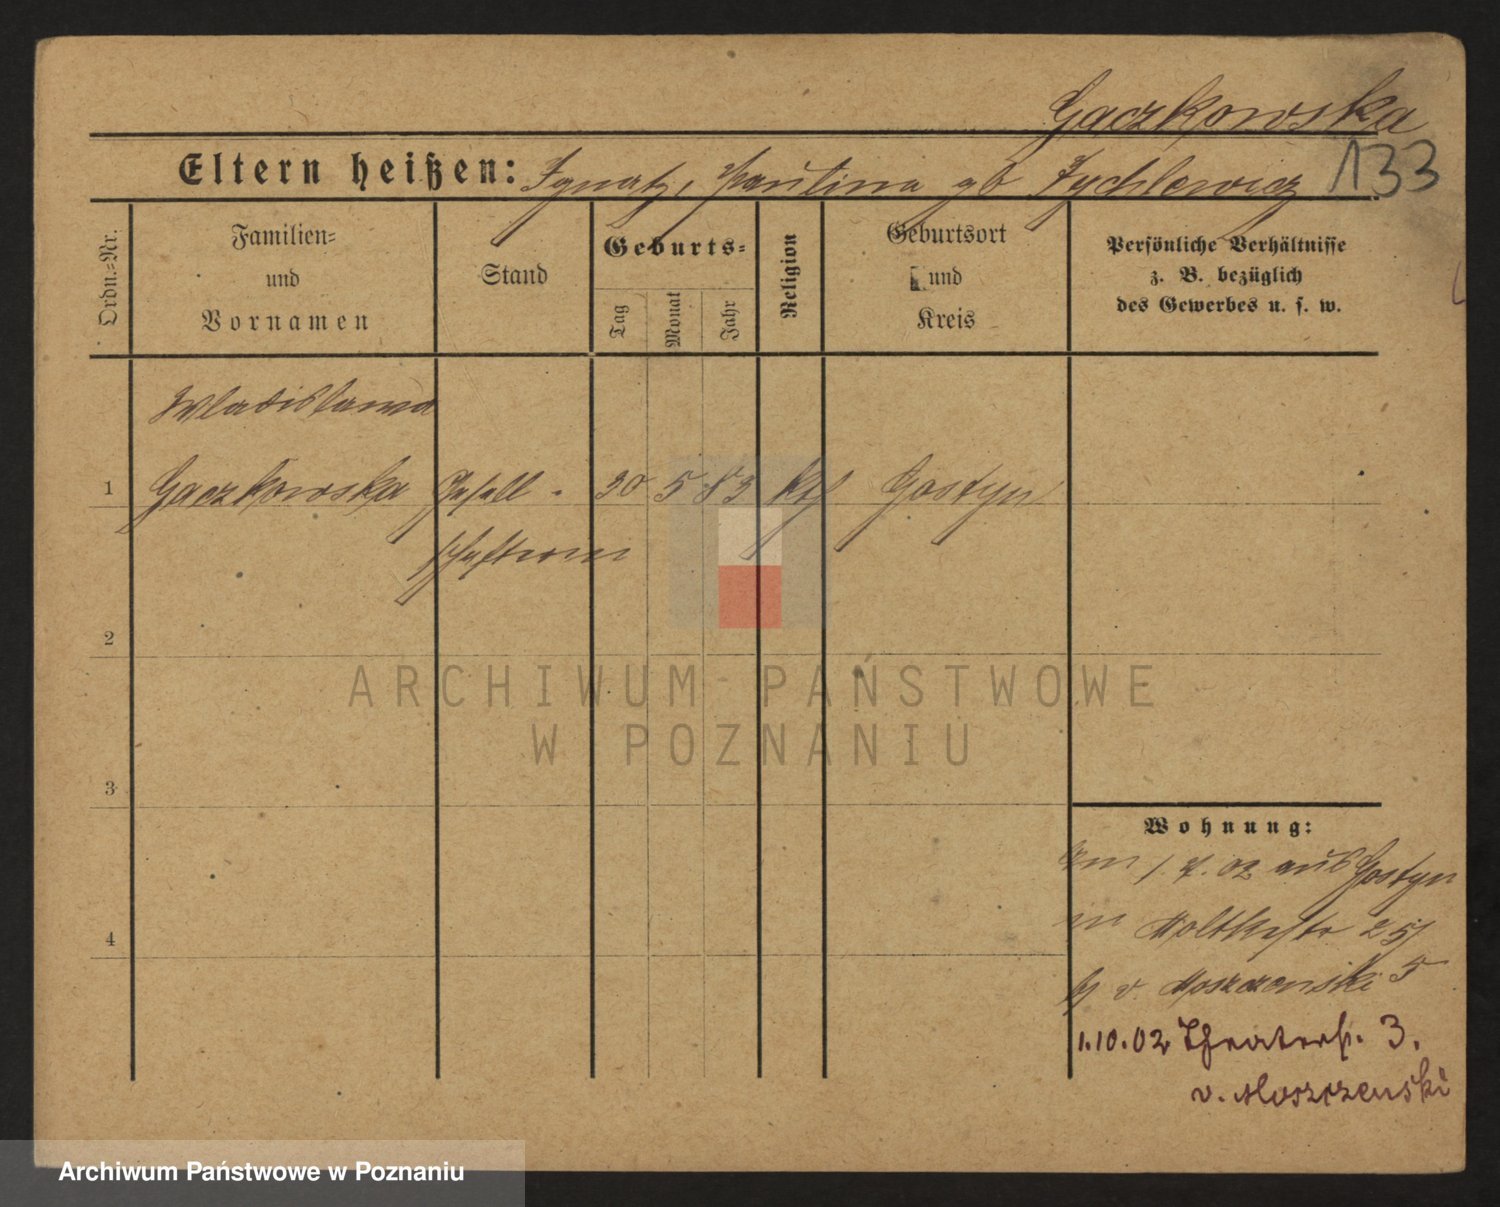 Gaczkowska
Eltern heißen: Ignatz, Paulina gb Zychlewicz
133
Ordn.-Nr.
Familien-
und
Vornamen
Stand
Geburts-
Tag
Monat
Jahr
Religion
Geburtsort
und
Kreis
Persönliche Verhältnisse
z. B. bezüglich
des Gewerbes u. s. w.
Wladislawa
1 Gaczkowska Gesell- 30 5 83 kth Gostyn
schafterin
2
3
4
Wohnung:
Am 1.7.02 aus Gostyn
in Moltkestr 25/
b/ v. Moszczenski 5
1.10.02 Theaterstr. 3.
v. Moszczenski
ARCHIWUM PAŃSTWOWE
W POZNANIU
Archiwum Państwowe w Poznaniu